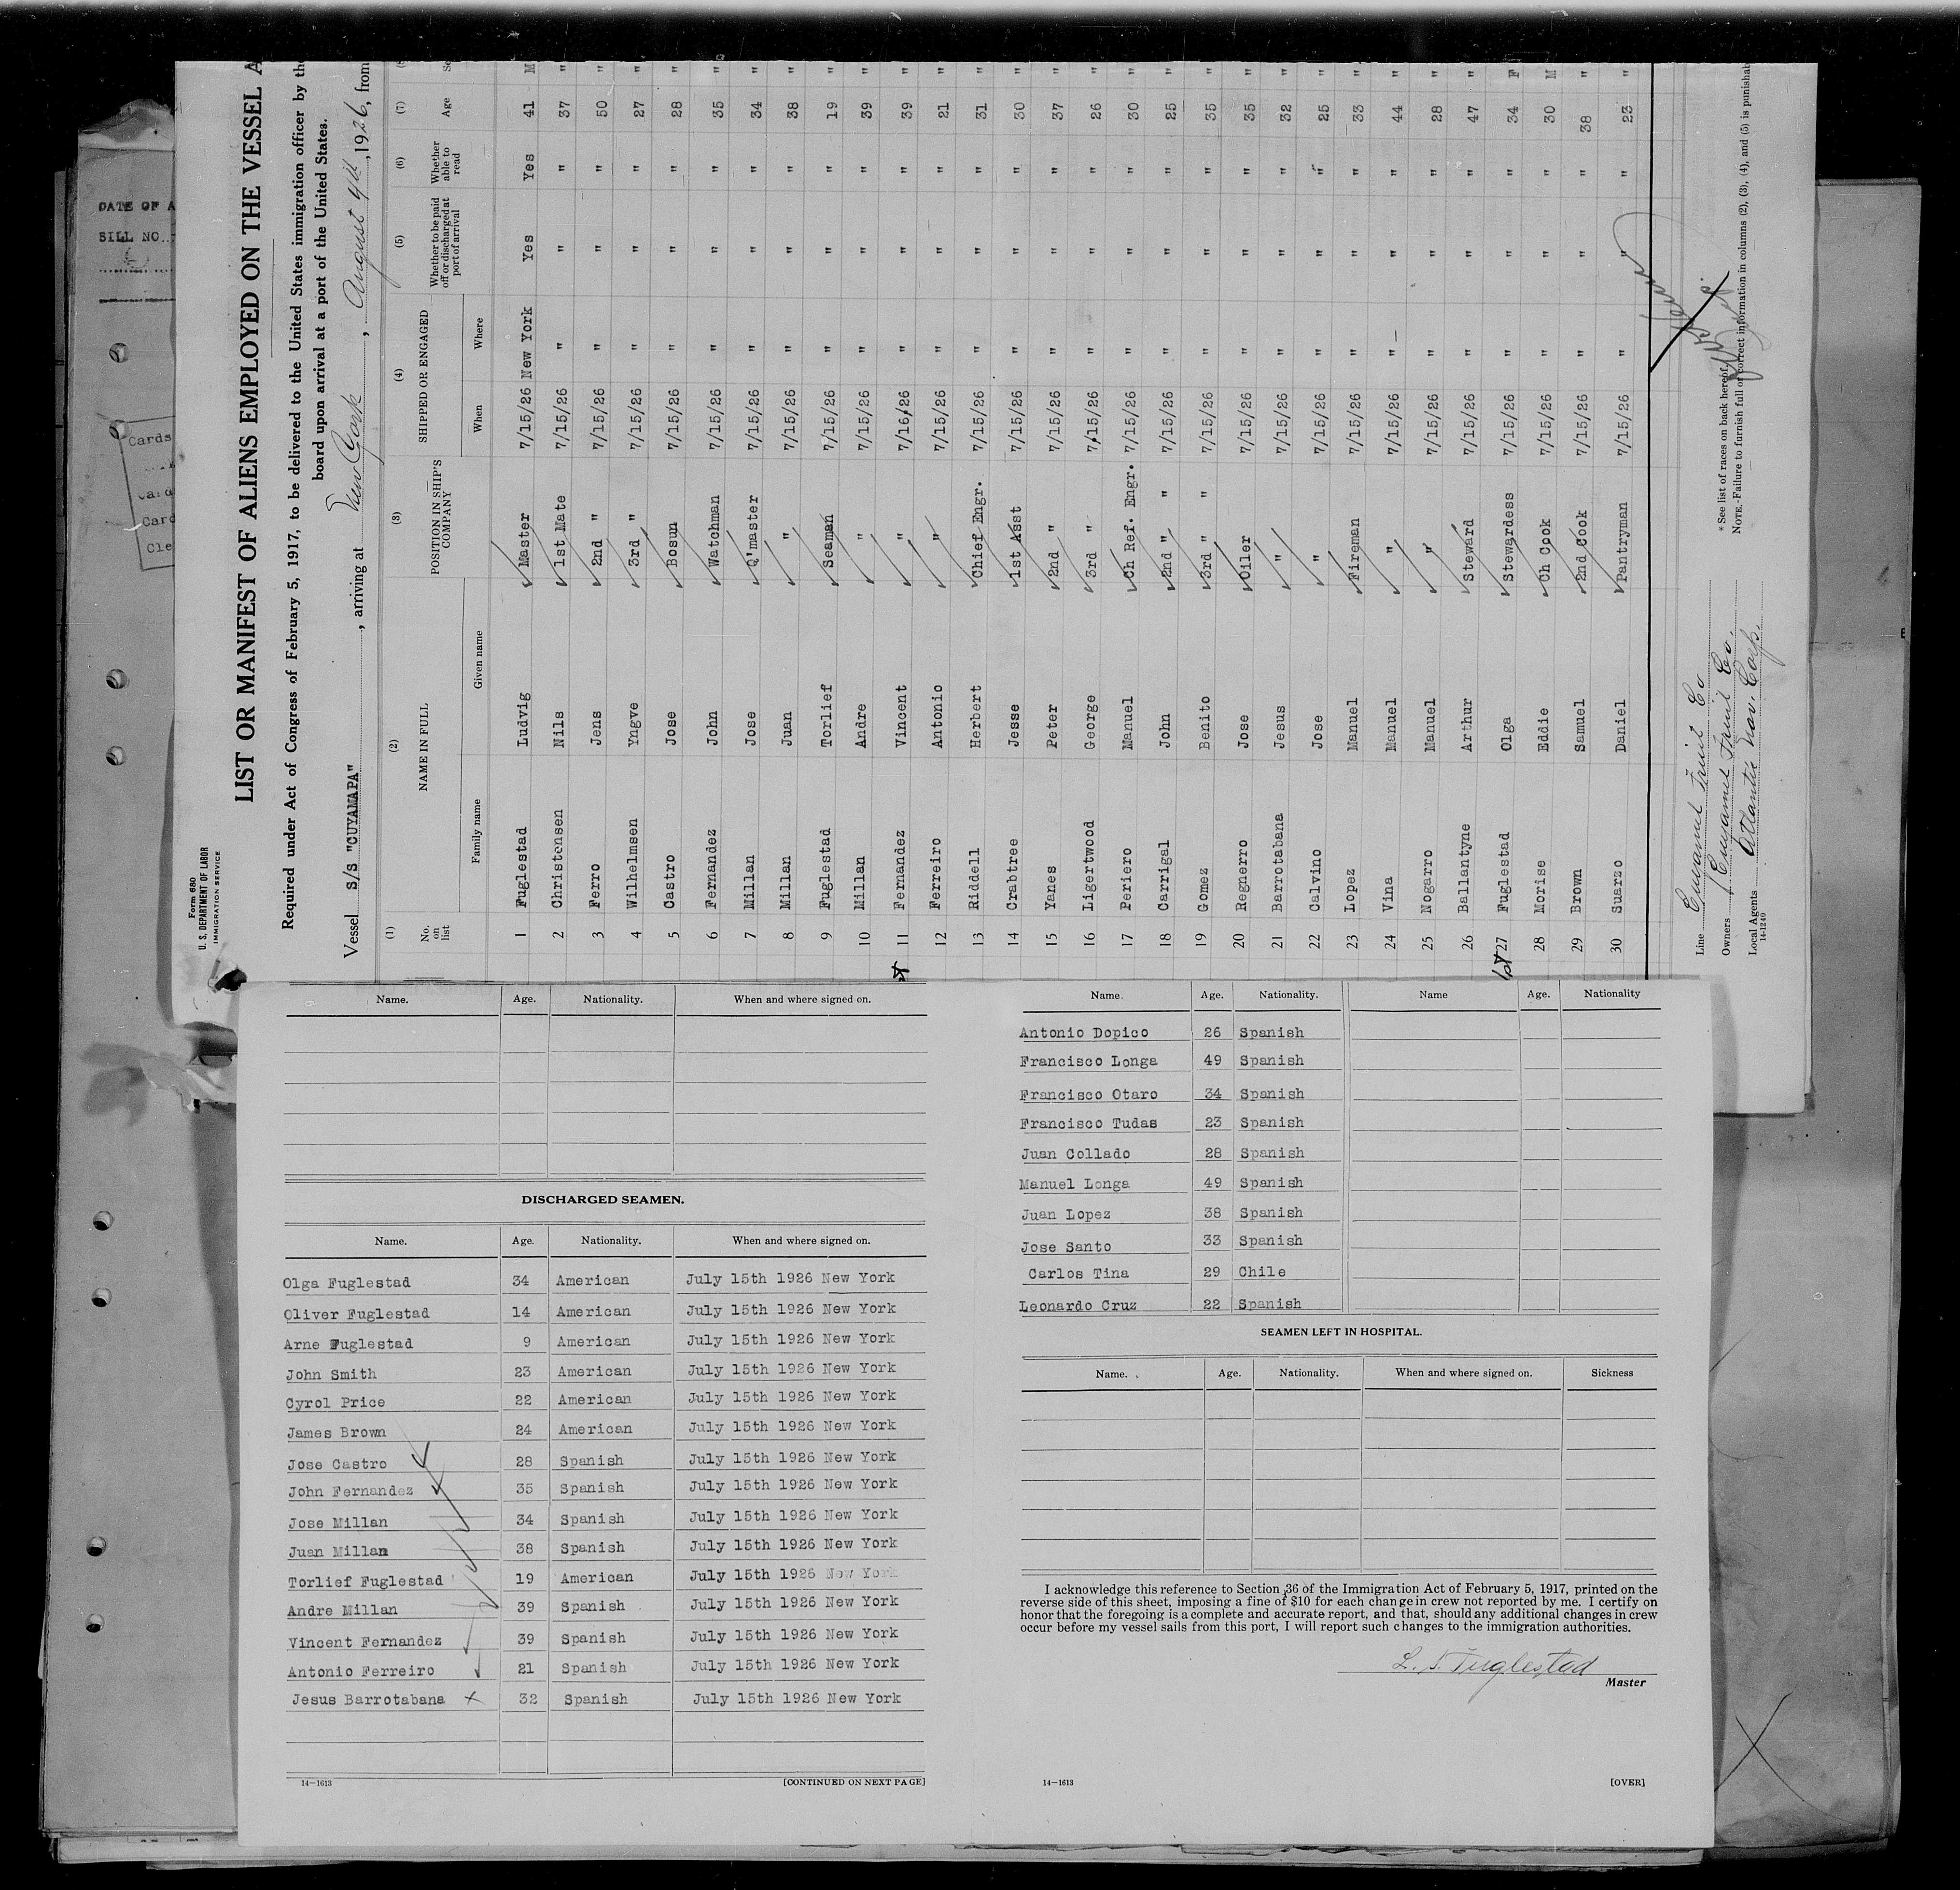 DATE OF A
BILL NO.
Cards
Card
Card
Cle
Form 680
U. S. DEPARTMENT OF LABOR
IMMIGRATION SERVICE
LIST OR MANIFEST OF ALIENS EMPLOYED ON THE VESSEL A
Required under Act of Congress of February 5, 1917, to be delivered to the United States immigration officer by the
board upon arrival at a port of the United States.
Vessel S/S "CUYAMAPA", arriving at New York, August 4th, 1926, from
(1) (2) (3) (4) (5) (6) (7) (8
No. on list NAME IN FULL POSITION IN SHIP'S COMPANY SHIPPED OR ENGAGED Whether to be paid off or discharged at port of arrival Whether able to read Age Se
Family name Given name When Where
1 Fuglestad Ludvig Master 7/15/26 New York Yes Yes 41 M
2 Christensen Nils 1st Mate 7/15/26 " " " 37 "
3 Ferro Jens 2nd " 7/15/26 " " " 50 "
4 Wilhelmsen Yngve 3rd " 7/15/26 " " " 27 "
5 Castro Jose Bosun 7/15/26 " " " 28 "
6 Fernandez John Watchman 7/15/26 " " " 35 "
7 Millan Jose Q'master 7/15/26 " " " 34 "
8 Millan Juan " 7/15/26 " " " 38 "
9 Fuglestad Torlief Seaman 7/15/26 " " " 19 "
10 Millan Andre " 7/15/26 " " " 39 "
11 Fernandez Vincent " 7/16/26 " " " 39 "
12 Ferreiro Antonio " 7/15/26 " " " 21 "
13 Riddell Herbert Chief Engr. 7/15/26 " " " 31 "
14 Crabtree Jesse 1st Asst 7/15/26 " " " 30 "
15 Yanes Peter 2nd " 7/15/26 " " " 37 "
16 Ligertwood George 3rd " 7/15/26 " " " 26 "
17 Periero Manuel Ch Ref. Engr. 7/15/26 " " " 30 "
18 Carrigal John 2nd " " 7/15/26 " " " 25 "
19 Gomez Benito 3rd " " 7/15/26 " " " 35 "
20 Regnerro Jose Oiler 7/15/26 " " " 35 "
21 Barrotabana Jesus " 7/15/26 " " " 32 "
22 Calvino Jose " 7/15/26 " " " 25 "
23 Lopez Manuel Fireman 7/15/26 " " " 33 "
24 Vina Manuel " 7/15/26 " " " 44 "
25 Nogarro Manuel " 7/15/26 " " " 28 "
26 Ballantyne Arthur Steward 7/15/26 " " " 47 "
27 Fuglestad Olga Stewardess 7/15/26 " " " 34 F
28 Morise Eddie Ch Cook 7/15/26 " " " 30 M
29 Brown Samuel 2nd Cook 7/15/26 " " " 38 "
30 Suarzo Daniel Pantryman 7/15/26 " " " 23 "
Line Cuyamel Fruit Co
Owners Cuyamel Fruit Co.
Local Agents Atlantic Nav. Corp.
14-1240
* See list of races on back hereof.
NOTE.-Failure to furnish full or correct information in columns (2), (3), (4), and (5) is punishab
Name. Age. Nationality. When and where signed on.
DISCHARGED SEAMEN.
Name. Age. Nationality. When and where signed on.
Olga Fuglestad 34 American July 15th 1926 New York
Oliver Fuglestad 14 American July 15th 1926 New York
Arne Fuglestad 9 American July 15th 1926 New York
John Smith 23 American July 15th 1926 New York
Cyrol Price 22 American July 15th 1926 New York
James Brown 24 American July 15th 1926 New York
Jose Castro 28 Spanish July 15th 1926 New York
John Fernandez 35 Spanish July 15th 1926 New York
Jose Millan 34 Spanish July 15th 1926 New York
Juan Millan 38 Spanish July 15th 1926 New York
Torlief Fuglestad 19 American July 15th 1926 New York
Andre Millan 39 Spanish July 15th 1926 New York
Vincent Fernandez 39 Spanish July 15th 1926 New York
Antonio Ferreiro 21 Spanish July 15th 1926 New York
Jesus Barrotabana x 32 Spanish July 15th 1926 New York
14—1613 [CONTINUED ON NEXT PAGE]
Name. Age. Nationality. Name Age. Nationality
Antonio Dopico 26 Spanish
Francisco Longa 49 Spanish
Francisco Otaro 34 Spanish
Francisco Tudas 23 Spanish
Juan Collado 28 Spanish
Manuel Longa 49 Spanish
Juan Lopez 38 Spanish
Jose Santo 33 Spanish
Carlos Tina 29 Chile
Leonardo Cruz 22 Spanish
SEAMEN LEFT IN HOSPITAL.
Name. Age. Nationality. When and where signed on. Sickness
I acknowledge this reference to Section 36 of the Immigration Act of February 5, 1917, printed on the
reverse side of this sheet, imposing a fine of $10 for each change in crew not reported by me. I certify on
honor that the foregoing is a complete and accurate report, and that, should any additional changes in crew
occur before my vessel sails from this port, I will report such changes to the immigration authorities.
L. T. Fuglestad
Master
14—1613 [OVER]